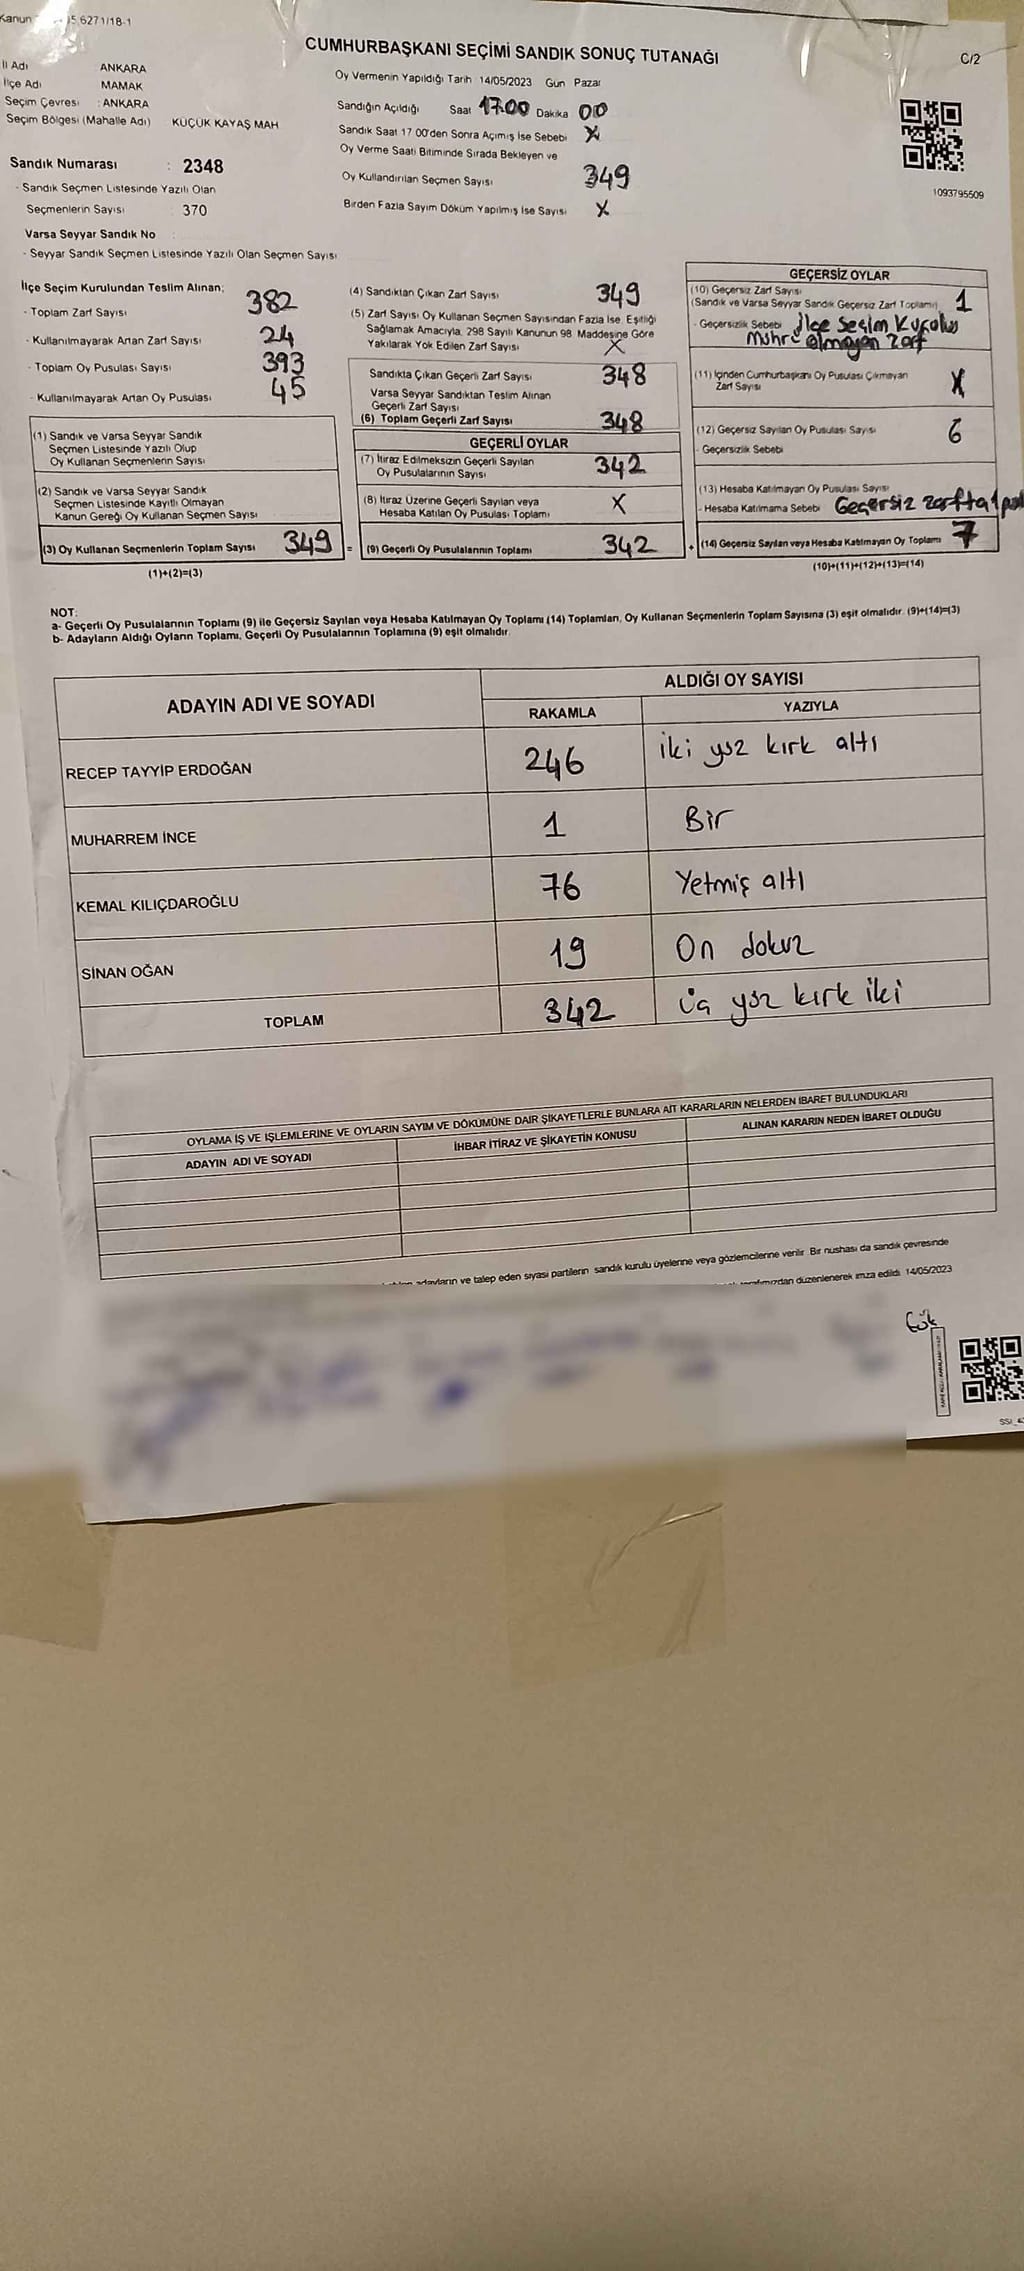 Kanun
5.6271/18-1
CUMHURBAŞKANI SEÇİMİ SANDIK SONUÇ TUTANAĞI
C/2
İl Adı ANKARA
İlçe Adı MAMAK
Seçim Çevresi : ANKARA
Seçim Bölgesi (Mahalle Adı) KÜÇÜK KAYAŞ MAH
Oy Vermenin Yapıldığı Tarih 14/05/2023 Gün Pazar
Sandığın Açıldığı Saat 17.00 Dakika 00
Sandık Saat 17 00'den Sonra Açımış İse Sebebi X
Oy Verme Saati Bitiminde Sırada Bekleyen ve
Oy Kullandırılan Seçmen Sayısı 349
Birden Fazla Sayım Döküm Yapılmış İse Sayısı X
1093795509
Sandık Numarası : 2348
- Sandık Seçmen Listesinde Yazılı Olan
Seçmenlerin Sayısı 370
Varsa Seyyar Sandık No :
- Seyyar Sandık Seçmen Listesinde Yazılı Olan Seçmen Sayısı
İlçe Seçim Kurulundan Teslim Alınan;
- Toplam Zarf Sayısı 382
- Kullanılmayarak Artan Zarf Sayısı 24
- Toplam Oy Pusulası Sayısı 393
- Kullanılmayarak Artan Oy Pusulası 45
(1) Sandık ve Varsa Seyyar Sandık
Seçmen Listesinde Yazılı Olup
Oy Kullanan Seçmenlerin Sayısı
(2) Sandık ve Varsa Seyyar Sandık
Seçmen Listesinde Kayıtlı Olmayan
Kanun Gereği Oy Kullanan Seçmen Sayısı
(3) Oy Kullanan Seçmenlerin Toplam Sayısı 349 =
(1)+(2)=(3)
(4) Sandıktan Çıkan Zarf Sayısı 349
(5) Zarf Sayısı Oy Kullanan Seçmen Sayısından Fazla İse, Eşitliği
Sağlamak Amacıyla, 298 Sayılı Kanunun 98. Maddesine Göre
Yakılarak Yok Edilen Zarf Sayısı X
Sandıkta Çıkan Geçerli Zarf Sayısı 348
Varsa Seyyar Sandıktan Teslim Alınan
Geçerli Zarf Sayısı
(6) Toplam Geçerli Zarf Sayısı 348
GEÇERLİ OYLAR
(7) İtiraz Edilmeksizin Geçerli Sayılan
Oy Pusulalarının Sayısı 342
(8) İtiraz Üzerine Geçerli Sayılan veya
Hesaba Katılan Oy Pusulası Toplamı X
(9) Geçerli Oy Pusulalarının Toplamı 342 +
GEÇERSİZ OYLAR
(10) Geçersiz Zarf Sayısı
(Sandık ve Varsa Seyyar Sandık Geçersiz Zarf Toplamı) 1
- Geçersizlik Sebebi İlçe Seçim Kurulu
Mührü olmayan Zarf
(11) İçinden Cumhurbaşkanı Oy Pusulası Çıkmayan
Zarf Sayısı X
(12) Geçersiz Sayılan Oy Pusulası Sayısı 6
- Geçersizlik Sebebi
(13) Hesaba Katılmayan Oy Pusulası Sayısı
- Hesaba Katılmama Sebebi Geçersiz zarfta 1
(14) Geçersiz Sayılan veya Hesaba Katılmayan Oy Toplamı 7
(10)+(11)+(12)+(13)=(14)
NOT:
a- Geçerli Oy Pusulalarının Toplamı (9) ile Geçersiz Sayılan veya Hesaba Katılmayan Oy Toplamı (14) Toplamları, Oy Kullanan Seçmenlerin Toplam Sayısına (3) eşit olmalıdır. (9)+(14)=(3)
b- Adayların Aldığı Oyların Toplamı, Geçerli Oy Pusulalarının Toplamına (9) eşit olmalıdır.
ADAYIN ADI VE SOYADI
ALDIĞI OY SAYISI
RAKAMLA YAZIYLA
RECEP TAYYİP ERDOĞAN 246 iki yüz kırk altı
MUHARREM İNCE 1 Bir
KEMAL KILIÇDAROĞLU 76 Yetmiş altı
SİNAN OĞAN 19 On dokuz
TOPLAM 342 üç yüz kırk iki
OYLAMA İŞ VE İŞLEMLERİNE VE OYLARIN SAYIM VE DÖKÜMÜNE DAİR ŞİKAYETLERLE BUNLARA AİT KARARLARIN NELERDEN İBARET BULUNDUKLARI
ADAYIN ADI VE SOYADI İHBAR İTİRAZ VE ŞİKAYETİN KONUSU ALINAN KARARIN NEDEN İBARET OLDUĞU
adayların ve talep eden siyasi partilerin sandık kurulu üyelerine veya gözlemcilerine verilir. Bir nushası da sandık çevresinde
tarafımızdan düzenlenerek imza edildi. 14/05/2023